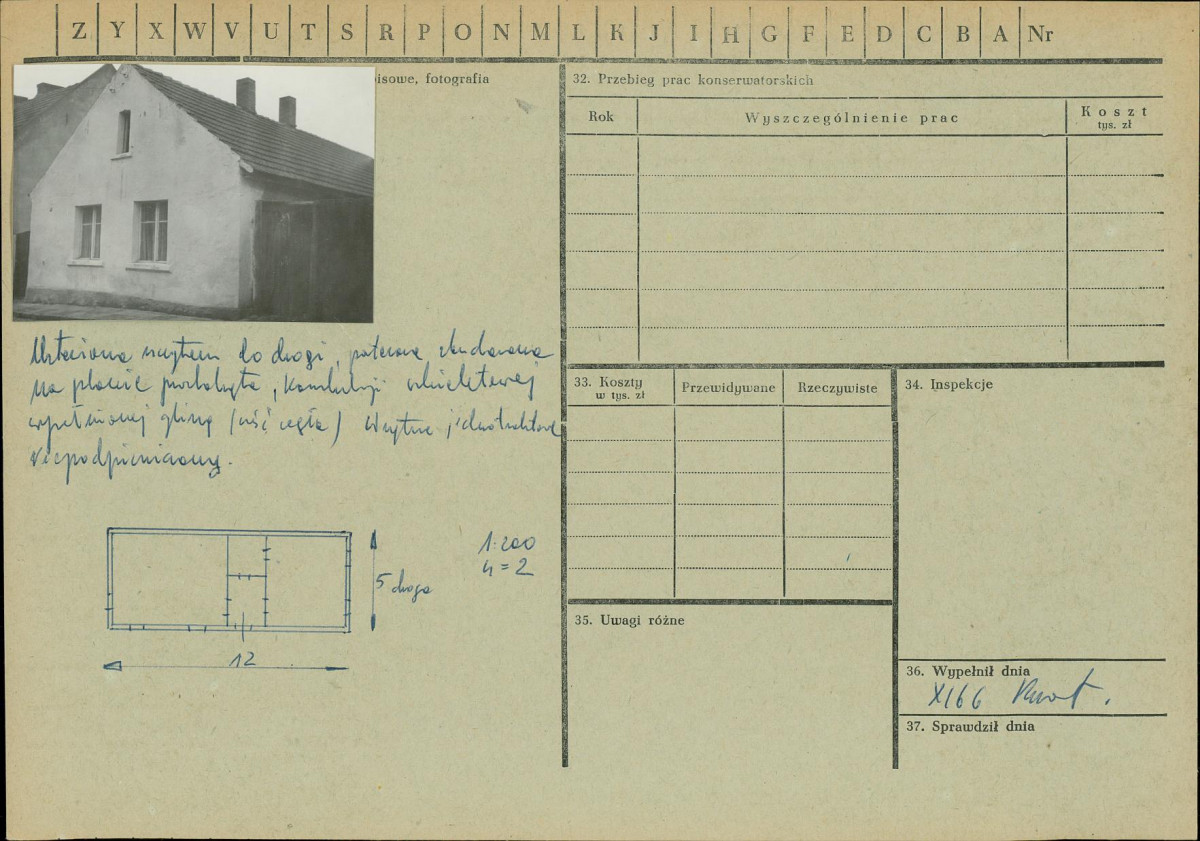 Z Y X W V U T S R P O N M L K J I H G F E D C B A Nr
isowe, fotografia
szczytem do drogi, parterowa zbudowana
na planie prostokąta, konstrukcji szkieletowej
wypełnionej gliną (część cegła) Wnętrze jednotraktowe
Niepodpiwniczony.
1:200
4 = 2
5 droga
12
32. Przebieg prac konserwatorskich
Rok
Wyszczególnienie prac
Koszt
tys. zł
33. Koszty
w tys. zł
Przewidywane
Rzeczywiste
34. Inspekcje
35. Uwagi różne
36. Wypełnił dnia
XI 66
37. Sprawdził dnia